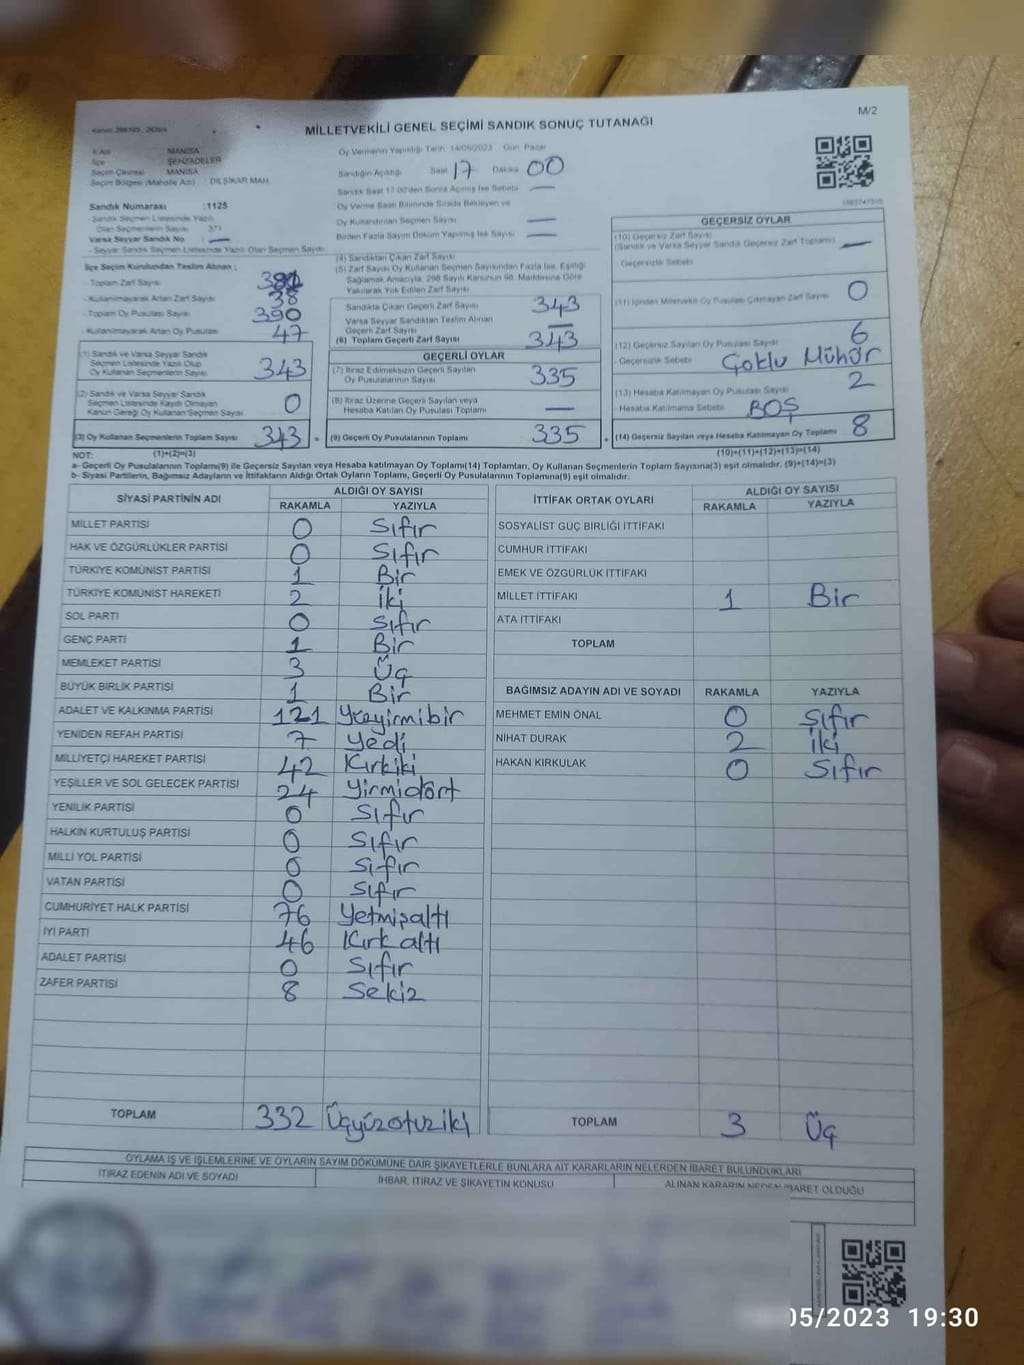 M/2
MİLLETVEKİLİ GENEL SEÇİMİ SANDIK SONUÇ TUTANAĞI
İl Adı : MANİSA
İlçe : ŞEHZADELER
Seçim Çevresi : MANİSA
Seçim Bölgesi (Mahalle Adı) : DİLŞİKAR MAH.
Sandık Numarası : 1125
- Sandık Seçmen Listesinde Yazılı
Olan Seçmenlerin Sayısı 371
Varsa Seyyar Sandık No : —
- Seyyar Sandık Seçmen Listesinde Yazılı Olan Seçmen Sayısı
Oy Vermenin Yapıldığı Tarih: 14/05/2023 Gün: Pazar
Sandığın Açıldığı Saat 17 Dakika 00
Sandık Saat 17.00'den Sonra Açılmış İse Sebebi —
Oy Verme Saati Bitiminde Sırada Bekleyen ve
Oy Kullandırılan Seçmen Sayısı —
Birden Fazla Sayım Döküm Yapılmış İse Sayısı —
İlçe Seçim Kurulundan Teslim Alınan ;
- Toplam Zarf Sayısı
- Kullanılmayarak Artan Zarf Sayısı 38
- Toplam Oy Pusulası Sayısı 390
- Kullanılmayarak Artan Oy Pusulası 47
(1) Sandık ve Varsa Seyyar Sandık
Seçmen Listesinde Yazılı Olup
Oy Kullanan Seçmenlerin Sayısı 343
(2) Sandık ve Varsa Seyyar Sandık
Seçmen Listesinde Kaydı Olmayan
Kanun Gereği Oy Kullanan Seçmen Sayısı 0
(3) Oy Kullanan Seçmenlerin Toplam Sayısı 343 =
(4) Sandıktan Çıkan Zarf Sayısı
(5) Zarf Sayısı Oy Kullanan Seçmen Sayısından Fazla İse, Eşitliği
Sağlamak Amacıyla, 298 Sayılı Kanunun 98. Maddesine Göre
Yakılarak Yok Edilen Zarf Sayısı
Sandıkta Çıkan Geçerli Zarf Sayısı 343
Varsa Seyyar Sandıktan Teslim Alınan
Geçerli Zarf Sayısı —
(6) Toplam Geçerli Zarf Sayısı 343
GEÇERLİ OYLAR
(7) İtiraz Edilmeksizin Geçerli Sayılan
Oy Pusulalarının Sayısı 335
(8) İtiraz Üzerine Geçerli Sayılan veya
Hesaba Katılan Oy Pusulası Toplamı —
(9) Geçerli Oy Pusulalarının Toplamı 335 +
GEÇERSİZ OYLAR
(10) Geçersiz Zarf Sayısı
(Sandık ve Varsa Seyyar Sandık Geçersiz Zarf Toplamı) —
Geçersizlik Sebebi
(11) İçinden Milletvekili Oy Pusulası Çıkmayan Zarf Sayısı 0
(12) Geçersiz Sayılan Oy Pusulası Sayısı 6
Geçersizlik Sebebi Çoklu Mühür
(13) Hesaba Katılmayan Oy Pusulası Sayısı 2
Hesaba Katılmama Sebebi BOŞ
(14) Geçersiz Sayılan veya Hesaba Katılmayan Oy Toplamı 8
NOT: (1)+(2)=(3) (10)+(11)+(12)+(13)=(14)
a- Geçerli Oy Pusulaları Toplamı(9) ile Geçersiz Sayılan veya Hesaba katılmayan Oy Toplamı(14) Toplamları, Oy Kullanan Seçmenlerin Toplam Sayısına(3) eşit olmalıdır. (9)+(14)=(3)
b- Siyasi Partilerin, Bağımsız Adayların ve İttifakların Aldığı Ortak Oyların Toplamı, Geçerli Oy Pusulalarının Toplamına(9) eşit olmalıdır.
SİYASİ PARTİNİN ADI ALDIĞI OY SAYISI
RAKAMLA YAZIYLA
MİLLET PARTİSİ 0 Sıfır
HAK VE ÖZGÜRLÜKLER PARTİSİ 0 Sıfır
TÜRKİYE KOMÜNİST PARTİSİ 1 Bir
TÜRKİYE KOMÜNİST HAREKETİ 2 İki
SOL PARTİ 0 Sıfır
GENÇ PARTİ 1 Bir
MEMLEKET PARTİSİ 3 Üç
BÜYÜK BİRLİK PARTİSİ 1 Bir
ADALET VE KALKINMA PARTİSİ 121 Yüzyirmibir
YENİDEN REFAH PARTİSİ 7 Yedi
MİLLİYETÇİ HAREKET PARTİSİ 42 Kırkiki
YEŞİLLER VE SOL GELECEK PARTİSİ 24 Yirmidört
YENİLİK PARTİSİ 0 Sıfır
HALKIN KURTULUŞ PARTİSİ 0 Sıfır
MİLLİ YOL PARTİSİ 0 Sıfır
VATAN PARTİSİ 0 Sıfır
CUMHURİYET HALK PARTİSİ 76 Yetmişaltı
İYİ PARTİ 46 Kırkaltı
ADALET PARTİSİ 0 Sıfır
ZAFER PARTİSİ 8 Sekiz
TOPLAM 332 Üçyüzotuziki
İTTİFAK ORTAK OYLARI ALDIĞI OY SAYISI
RAKAMLA YAZIYLA
SOSYALİST GÜÇ BİRLİĞİ İTTİFAKI
CUMHUR İTTİFAKI
EMEK VE ÖZGÜRLÜK İTTİFAKI
MİLLET İTTİFAKI 1 Bir
ATA İTTİFAKI
TOPLAM
BAĞIMSIZ ADAYIN ADI VE SOYADI RAKAMLA YAZIYLA
MEHMET EMİN ÖNAL 0 Sıfır
NİHAT DURAK 2 İki
HAKAN KIRKULAK 0 Sıfır
TOPLAM 3 Üç
OYLAMA İŞ VE İŞLEMLERİNE VE OYLARIN SAYIM DÖKÜMÜNE DAİR ŞİKAYETLERLE BUNLARA AİT KARARLARIN NELERDEN İBARET BULUNDUKLARI
İTİRAZ EDENİN ADI VE SOYADI İHBAR, İTİRAZ VE ŞİKAYETİN KONUSU ALINAN KARARIN NEDEN İBARET OLDUĞU
05/2023 19:30